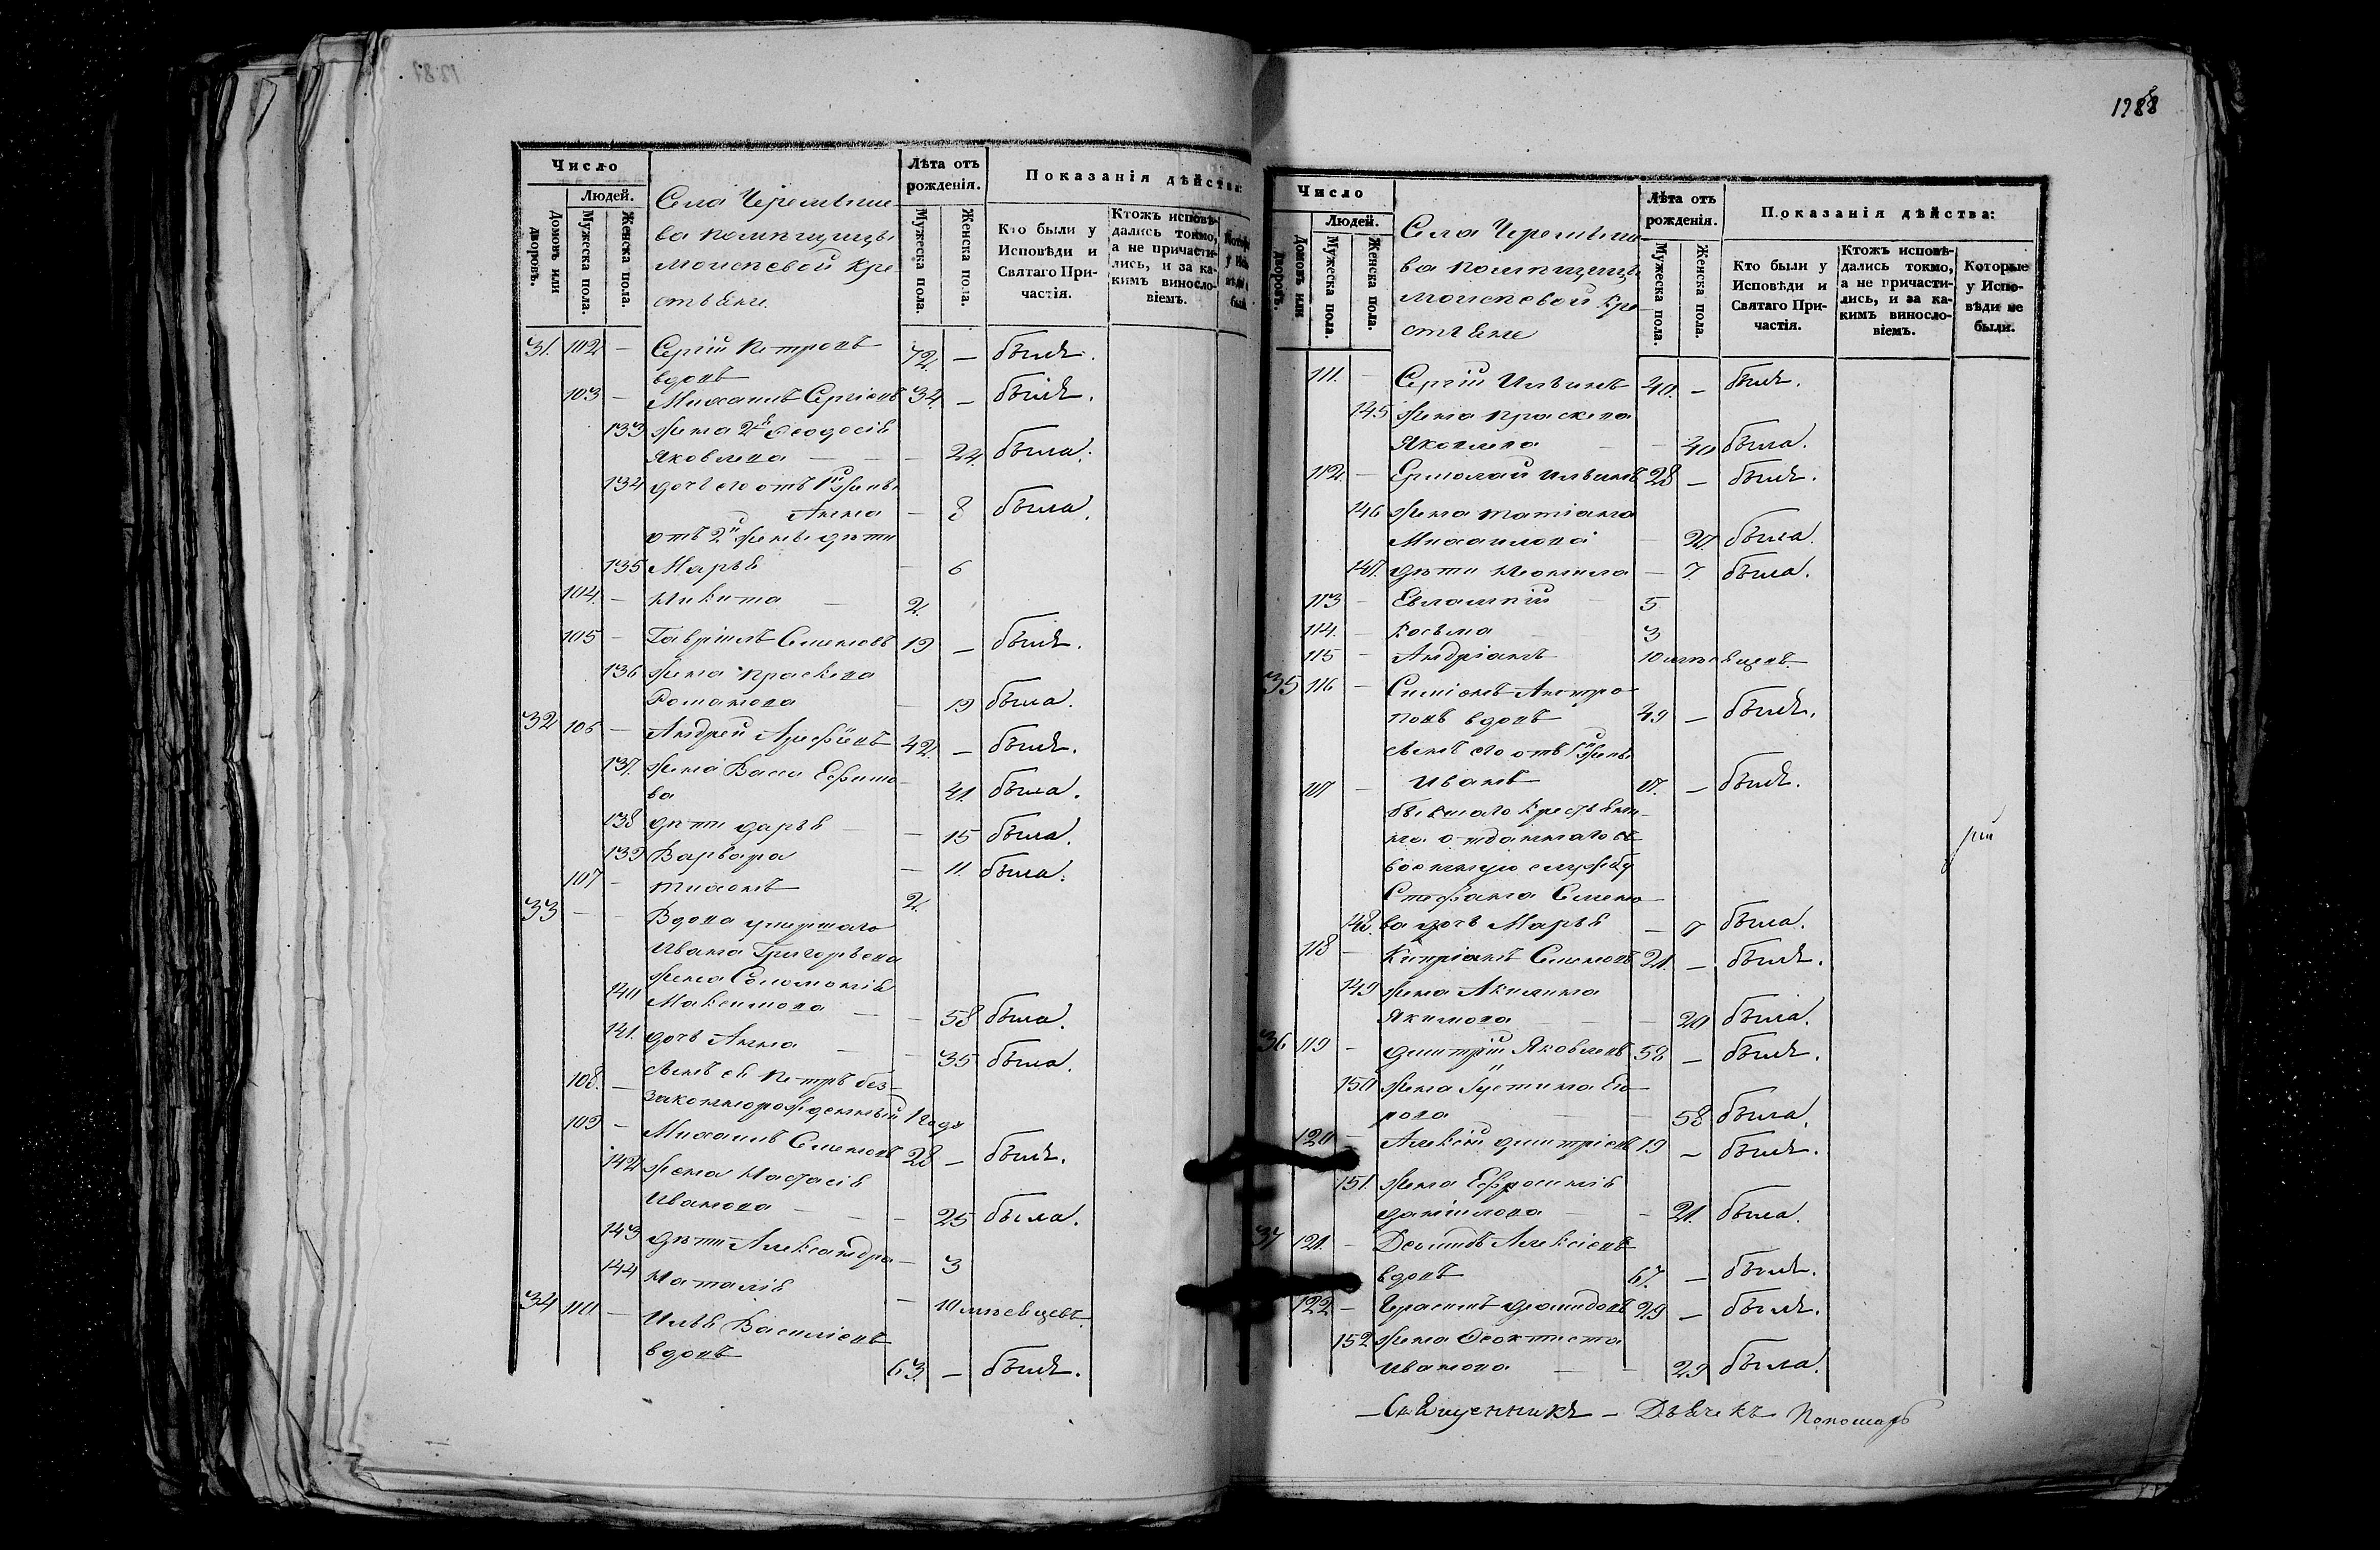 1288
Число
Людей.
Домовъ или дворовъ.
Мужеска пола.
Женска пола.
Села Черемыше
ва помѣщицы
Моисеевой кре
стьяне.
Лѣта отъ рожденія.
Мужеска пола.
Женска пола.
Показанія дѣйства:
Кто были у Исповѣди и Святаго Причастія.
Ктожъ исповѣдались токмо, а не причастились, и за какимъ винословіемъ.
31. 102 – Сергій Петровъ
вдовъ 72 – былъ.
103 – Михаилъ Сергіевъ 34. – былъ.
133 жена 2я Ѳеодосія
Яковлева – – 24. была.
134 дочь его отъ 1й жены
Анна – 8 была.
отъ 2й жены дѣти
135 Марья – 6
104. – Никита – 2.
105 – Гавріилъ Семеновъ 19 – былъ.
136 жена Праскева
Романова – 19 была.
32 106 – Андрей Арефіевъ 42. – былъ.
137. жена Васса Ефимо
ва – 41. была.
138 дѣти Дарья – – 15 была.
139 Варвара – 11. была.
107 – Тихонъ 2.
33 – – Вдова умершаго
Ивана Григорьева
жена Соломонія
140 Максимова – – 58 была.
141. дочь Анна – – 35 была.
108. – Сынъ ея Петръ без-
законнорожденный 1 года
109 – Михаилъ Семеновъ 28 – былъ.
142 жена Настасія
Иванова – – 25 была.
143 дѣти Александра – 3
144 Наталія – 10 мѣсяцевъ.
34 110 – Илья Василіевъ
вдовъ 63. – былъ.
Число
Людей.
Домовъ или дворовъ.
Мужеска пола.
Женска пола.
Села Черемыше
ва помѣщицы
Моисеевой кре
стьяне
Лѣта отъ рожденія.
Мужеска пола.
Женска пола.
Показанія дѣйства:
Кто были у Исповѣди и Святаго Причастія.
Ктожъ исповѣдались токмо, а не причастились, и за какимъ винословіемъ.
Которые у Исповѣди не были.
111. – Сергій Ильинъ 40. – былъ.
145 жена Праскева
Яковлева – – 40 была.
112. – Ермолай Ильинъ 28 – былъ.
146 жена Татіана
Михаилова – 27. была.
147. дѣти Неонила – 7. была.
113 – Евлампій – 5
114. – Косьма 3
115 – Андріанъ 10 мѣсяцевъ.
35 116 – Симіонъ Антро
повъ вдовъ 49 – былъ.
сынъ его отъ 1й жены
117 – Иванъ 17. – былъ.
бывшаго крестьяни-
на отданнаго въ
военную службу
Стефана Семено
148. ва дочь Марья – 7 была.
118 – Кипріанъ Семеновъ 21. – былъ.
149 жена Акилина
Якимова – – 20 была.
36 119 – Дмитрій Яковлевъ 58 – былъ.
150 жена Іустина Его
рова – – 58 была.
120 – Алексій Дмитріевъ 19 – былъ.
151. жена Ефросинія
Даніилова – – 21. была.
37 121. – Демидъ Алексіевъ
вдовъ 67. – былъ.
122 – Герасимъ Демидовъ 29 – былъ.
152 жена Ѳеоктиста
Иванова – – 29 была.
– Священникъ – Дьячекъ Пономарь